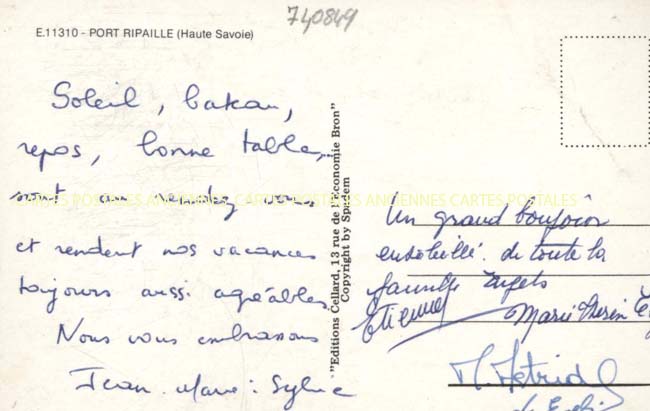 740849
E.11310 - PORT RIPAILLE (Haute Savoie)
Soleil, bateau,
repos, bonne table,...
sont au rendez vous
et rendent nos vacances
toujours aussi agréables.
Nous vous embrassons
Jean-Marie: Sylvie
"Editions Cellard, 13 rue de l'Economie Bron"
Copyright by Spadem
CARTES POSTALES ANCIENNES CARTES POSTALES ANCIENNES CARTES POSTALES
Un grand bonjour
ensoleillé. de toute la
famille
Etienne
Marie
M.